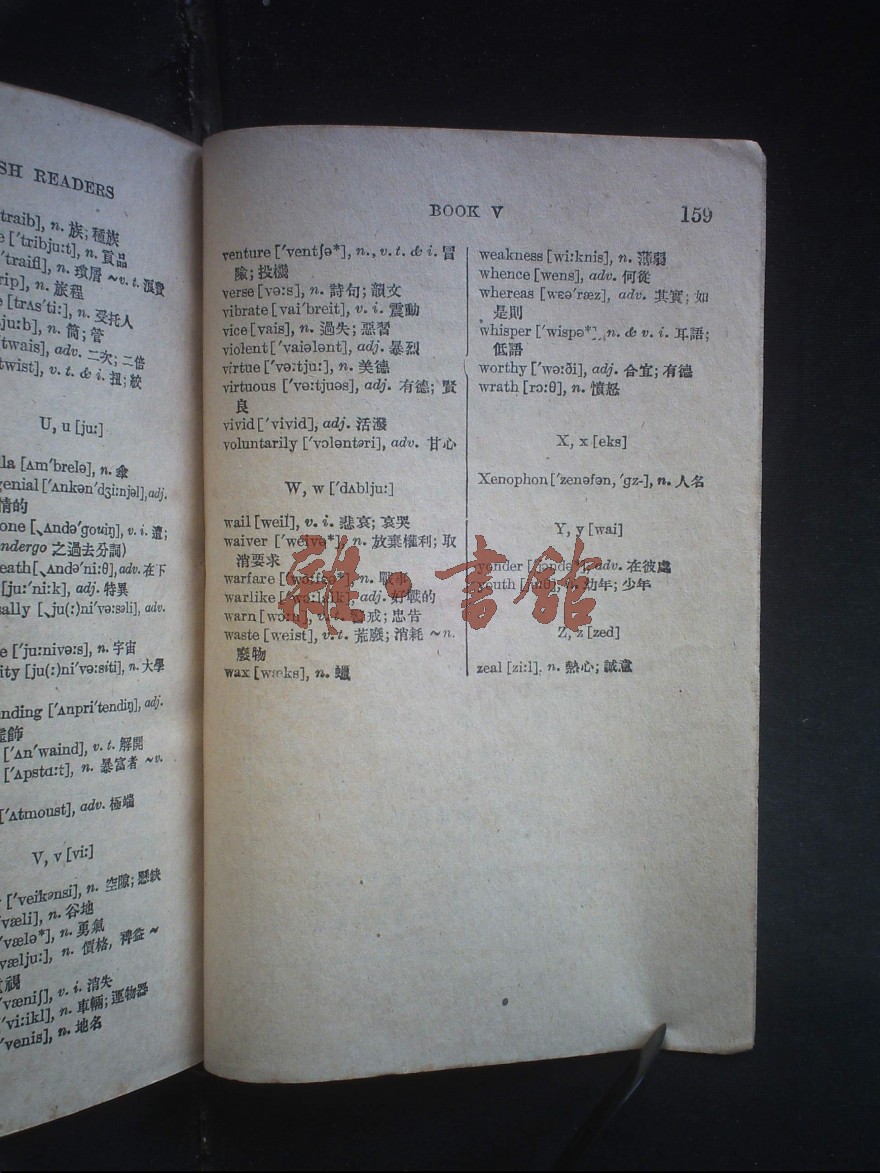 SH READERS
traib], n. 族; 種族
e ['tribju:t], n. 貢品
'traifl], n. 瑣屑 ~v. t. 浪費
rip], n. 旅程
e [trʌs'ti:], n. 受托人
ju:b], n. 筒; 管
twais], adv. 二次; 二倍
twist], v. t. & i. 扭; 絞
U, u [ju:]
lla [ʌm'brelə], n. 傘
genial ['ʌnkən'dʒi:njəl], adj.
情的
one [ˌʌndə'gouiŋ], v. i. 遭;
ndergo 之過去分詞)
eath [ˌʌndə'ni:θ], adv. 在下
[ju:'ni:k], adj. 特異
ally [ˌju(:)ni'və:səli], adv.
e ['ju:nivə:s], n. 宇宙
ity [ju(:)ni'və:siti], n. 大學
nding ['ʌnpri'tendiŋ], adj.
虛飾
['ʌn'waind], v. t. 解開
['ʌpstɑ:t], n. 暴富者 ~v.
['ʌtmoust], adv. 極端
V, v [vi:]
['veikənsi], n. 空隙; 懸缺
'væli], n. 谷地
'vælə*], n. 勇氣
vælju:], n. 價格, 裨益 ~
視
'væniʃ], v. i. 消失
'vi:ikl], n. 車輛; 運物器
'venis], n. 地名
BOOK V
159
venture ['ventʃə*], n., v. t. & i. 冒
險; 投機
verse [və:s], n. 詩句; 韻文
vibrate [vai'breit], v. i. 震動
vice [vais], n. 過失; 惡習
violent ['vaiələnt], adj. 暴烈
virtue ['və:tju:], n. 美德
virtuous ['və:tjuəs], adj. 有德; 賢
良
vivid ['vivid], adj. 活潑
voluntarily ['vɔləntəri], adv. 甘心
W, w ['dʌblju:]
wail [weil], v. i. 悲哀; 哀哭
waiver ['weivə*], n. 放棄權利; 取
消要求
warfare ['wɔ:fɛə*], n. 戰事
warlike ['wɔ:laik], adj. 好戰的
warn [wɔ:n], v. t. 戒; 忠告
waste [weist], v. t. 荒廢; 消耗 ~n.
廢物
wax [wæks], n. 蠟
weakness [wi:knis], n. 薄弱
whence [wens], adv. 何從
whereas [wɛə'ræz], adv. 其實; 如
是則
whisper ['wispə*], n. & v. i. 耳語;
低語
worthy ['wə:ði], adj. 合宜; 有德
wrath [rɔ:θ], n. 憤怒
X, x [eks]
Xenophon ['zenəfən, 'gz-], n. 人名
Y, y [wai]
yonder ['jɔndə*], adv. 在彼處
youth [ju:θ], n. 幼年; 少年
Z, z [zed]
zeal [zi:l], n. 熱心; 誠意
雜·書館